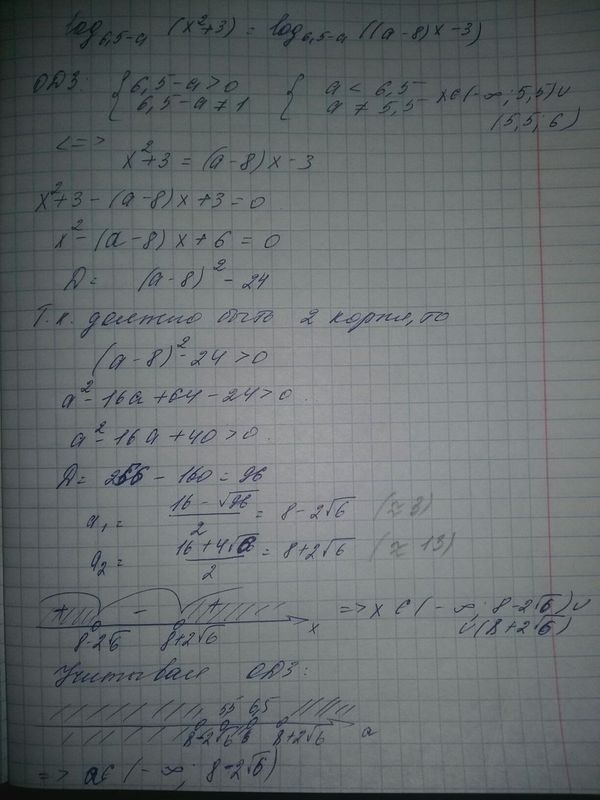 log₆,₅₋ₐ (x²+3) = log₆,₅₋ₐ ((a-8)x-3)
ОДЗ: { 6,5-a>0 { a < 6,5
6,5-a≠1 a ≠ 5,5 x∈(-∞; 5,5)∪
(5,5; 6)
<=>
x²+3 = (a-8)x-3
x²+3-(a-8)x+3=0
x²-(a-8)x+6=0
D= (a-8)²-24
Т.к. должно быть 2 корня, то
(a-8)²-24>0
a²-16a+64-24>0
a²-16a+40>0
D= 256-160=96
a₁= (16-√96)/2 = 8-2√6 (≈3)
a₂= (16+4√6)/2 = 8+2√6 (≈13)
+ - + =>x∈(-∞; 8-2√6)∪
8-2√6 8+2√6 x ∪(8+2√6)
Учитывая ОДЗ:
5,5 6,5
8-2√6 8+2√6 a
=> a∈(-∞; 8-2√6)